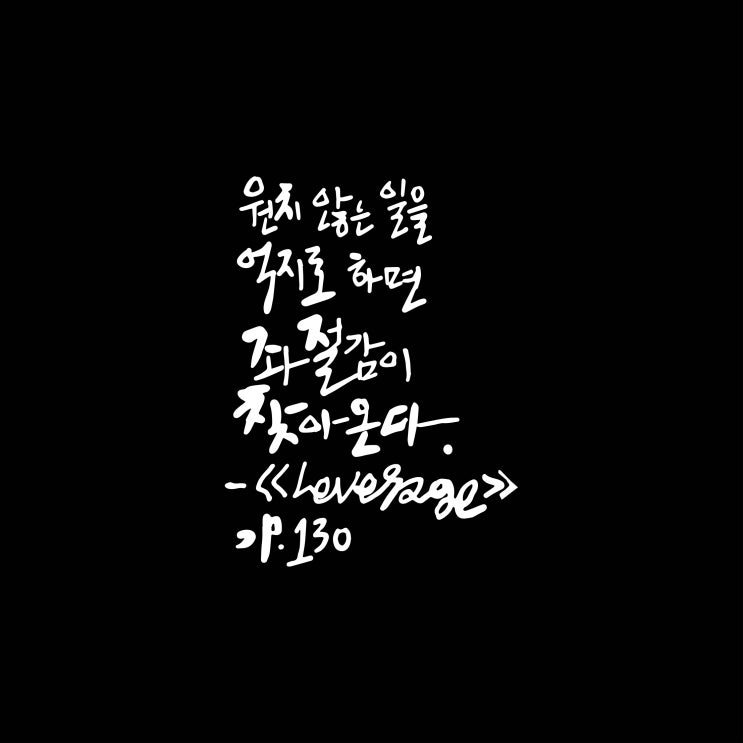 원치 않는 일을
억지로 하면
좌절감이
찾아온다.
-《Leverage》
p.130